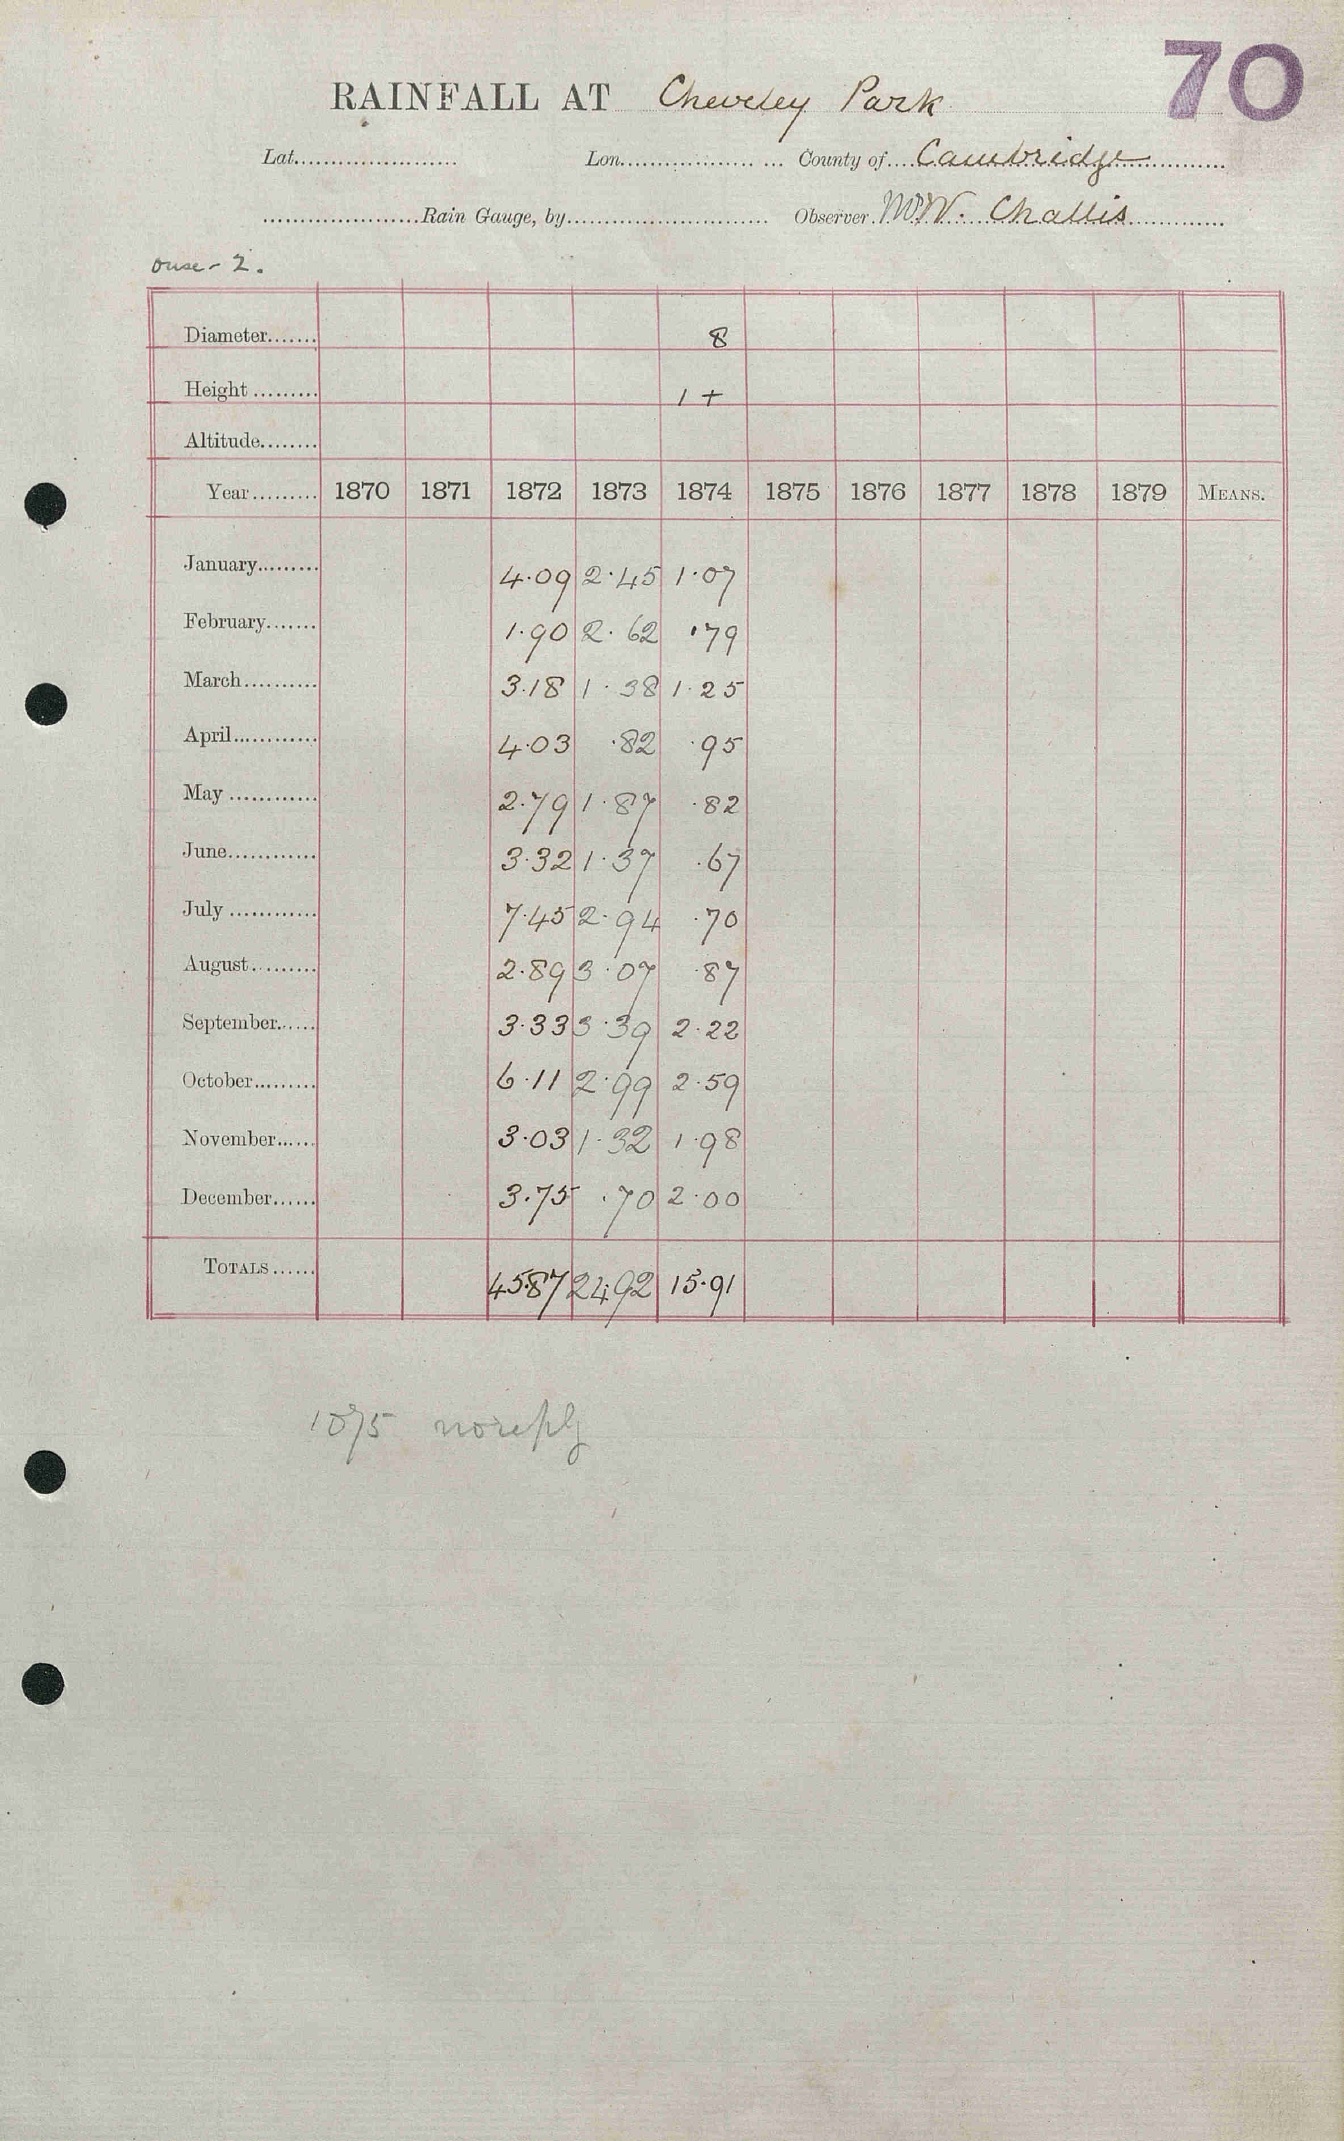 70
RAINFALL AT Cheveley Park
Lat...................... Lon...................... County of....Cambridge..........
.....................Rain Gauge, by.......................... Observer.Mr W. Challis..............
Ouse - 2.
Diameter....... 8
Height ......... 1 +
Altitude........
Year......... 1870 1871 1872 1873 1874 1875 1876 1877 1878 1879 MEANS.
January......... 4.09 2.45 1.07
February....... 1.90 2.62 .79
March.......... 3.18 1.38 1.25
April............ 4.03 .82 .95
May ............ 2.79 1.87 .82
June............ 3.32 1.37 .67
July ............ 7.45 2.94 .70
August.......... 2.89 3.07 .87
September...... 3.33 3.39 2.22
October......... 6.11 2.99 2.59
November...... 3.03 1.32 1.98
December...... 3.75 .70 2.00
TOTALS...... 45.87 24.92 15.91
1875 no reply